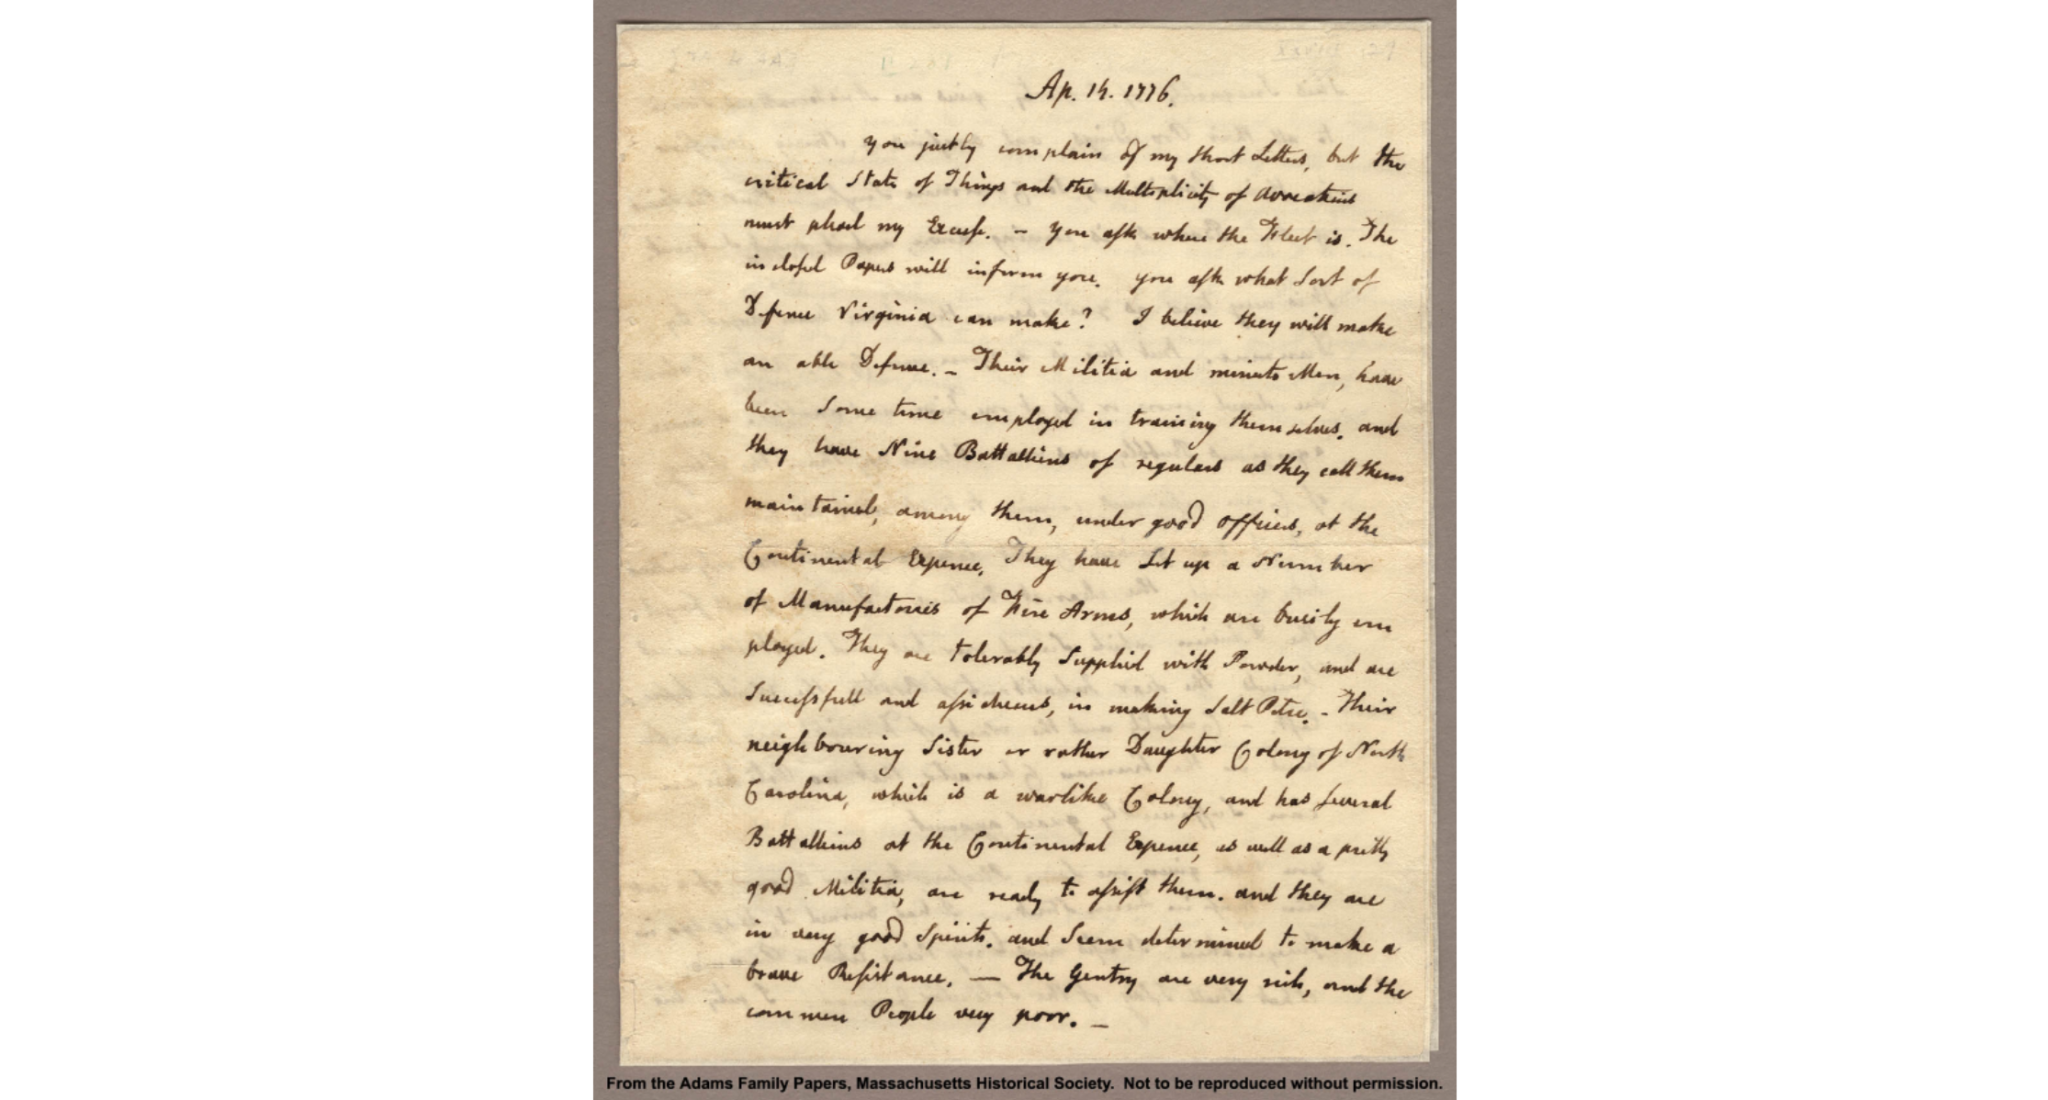 Ap. 14. 1776.
You justly complain of my short Letters, but the
critical State of Things and the Multiplicity of Avocations
must plead my Excuse. — You ask where the Fleet is. The
inclosed Papers will inform you. You ask what Sort of
Defence Virginia can make? I believe they will make
an able Defence. — Their Militia and minute Men, have
been Some time employed in training themselves, and
they have Nine Battallions of regulars as they call them
maintained, among them, under good officers, at the
Continental Expence. They have Set up a Number
of Manufactories of Fire Arms, which are busily em
ployed. They are tolerably Supplied with Powder, and are
Successfull and assiduous, in making Salt Petre. — Their
neighbouring Sister or rather Daughter Colony of North
Carolina, which is a warlike Colony, and has several
Battallions at the Continental Expence, as well as a pretty
good Militia, are ready to assist them. and they are
in very good Spirits. and Seem determined to make a
brave Resistance. — The Gentry are very rich, and the
common People very poor. —
From the Adams Family Papers, Massachusetts Historical Society. Not to be reproduced without permission.